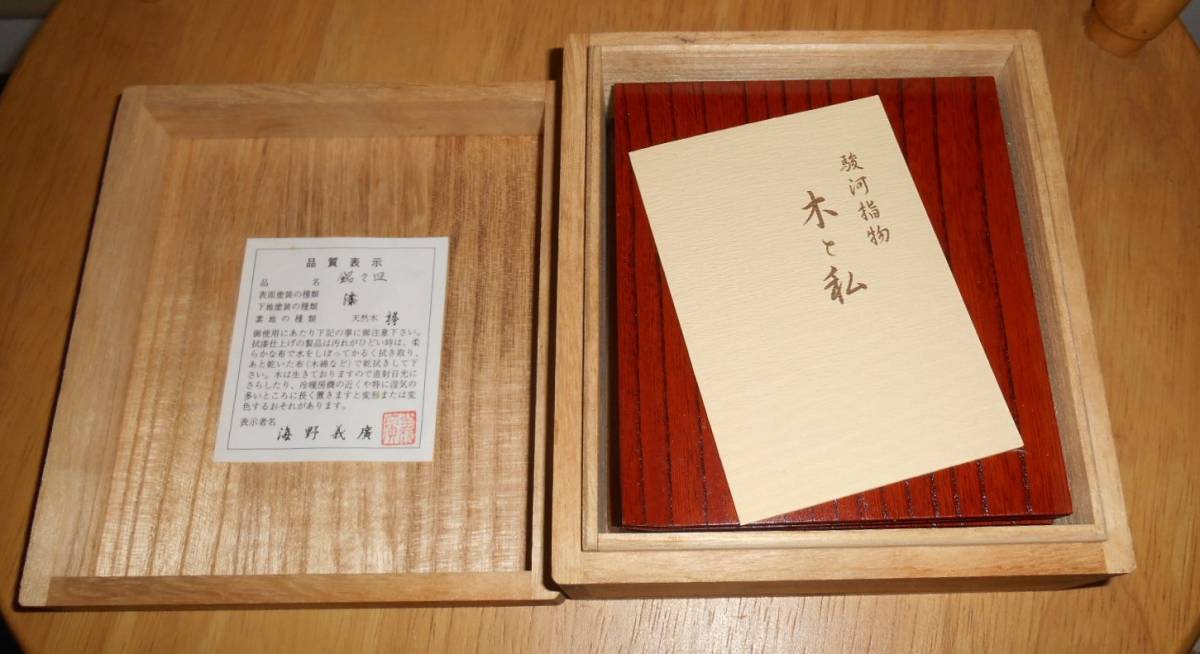 品質表示
品名 銘々皿
表面塗装の種類 漆
下地塗装の種類
素地の種類 天然木
御使用にあたり下記の事に御注意下さい。
拭漆仕上げの製品は汚れがひどい時は、柔
らかな布で水をしぼってかるく拭き取り、
あと乾いた布(木綿など)で乾拭きして下
さい。木は生きておりますので直射日光に
さらしたり、冷暖房機の近くや特に湿気の
多いところに長く置きますと変形または変
色するおそれがあります。
表示者名
海野義廣
駿河指物
木と私